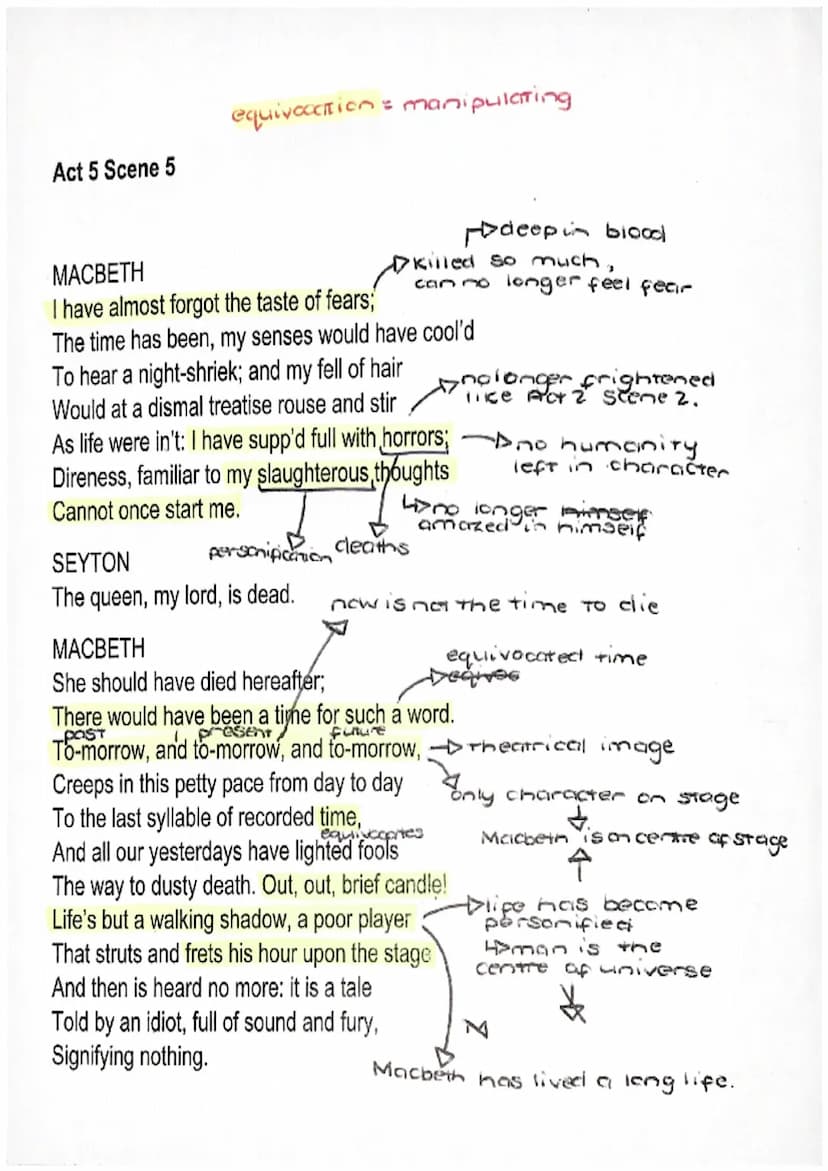 equivocation = manipulating
Act 5 Scene 5
deep in blood
killed so much,
can no longer feel fear
MACBETH
I have almost forgot the taste of fears;
The time has been, my senses would have cool'd
To hear a night-shriek; and my fell of hair
no longer frightened
like Act 2 Scene 2.
Would at a dismal treatise rouse and stir
As life were in't: I have supp'd full with horrors;
no humanity
left in character
Direness, familiar to my slaughterous thoughts
Cannot once start me.
no longer himself
amazed in himself
personification
deaths
SEYTON
The queen, my lord, is dead.
now is not the time to die
MACBETH
equivocated time
She should have died hereafter;
There would have been a time for such a word.
past present future
To-morrow, and to-morrow, and to-morrow,
theatrical image
Creeps in this petty pace from day to day
only character on stage
To the last syllable of recorded time,
equivocates
Macbeth is on centre of stage
And all our yesterdays have lighted fools
The way to dusty death. Out, out, brief candle!
life has become
personified
Life's but a walking shadow, a poor player
man is the
centre of universe
That struts and frets his hour upon the stage
And then is heard no more: it is a tale
Told by an idiot, full of sound and fury,
Signifying nothing.
Macbeth has lived a long life.